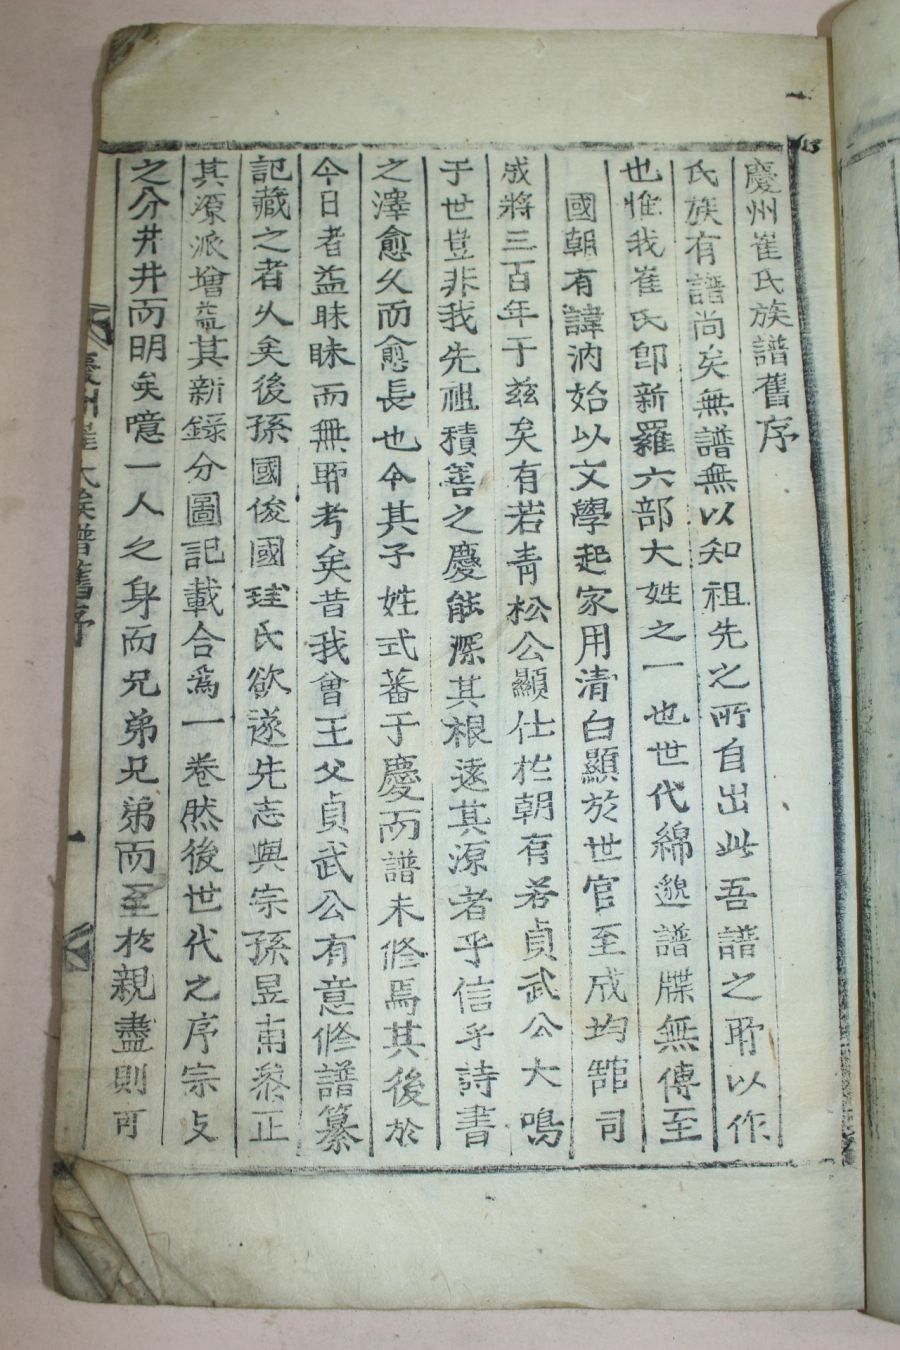 慶州崔氏族譜舊序
氏族有譜尚矣無譜無以知祖先之所自出此吾譜之所以作
也惟我崔氏卽新羅六部大姓之一也世代綿邈譜牒無傳至
國朝有諱汭始以文學起家用清白顯於世官至成均館司
成將三百年于玆矣有若青松公顯仕於朝有若貞武公大鳴
于世豈非我先祖積善之慶能深其根遠其源者乎信乎詩書
之澤愈久而愈長也今其子姓式蕃于慶而譜未修焉其後於
今日者益昧昧而無所考矣昔我曾王父貞武公有意修譜纂
記藏之者久矣後孫國俊國珪氏欲遂先志與宗孫昱甫叅正
其源派增益其新錄分圖記載合爲一卷然後世代之序宗支
之分井井而明矣噫一人之身而兄弟兄弟而至於親盡則可
慶州崔氏族譜舊序
一